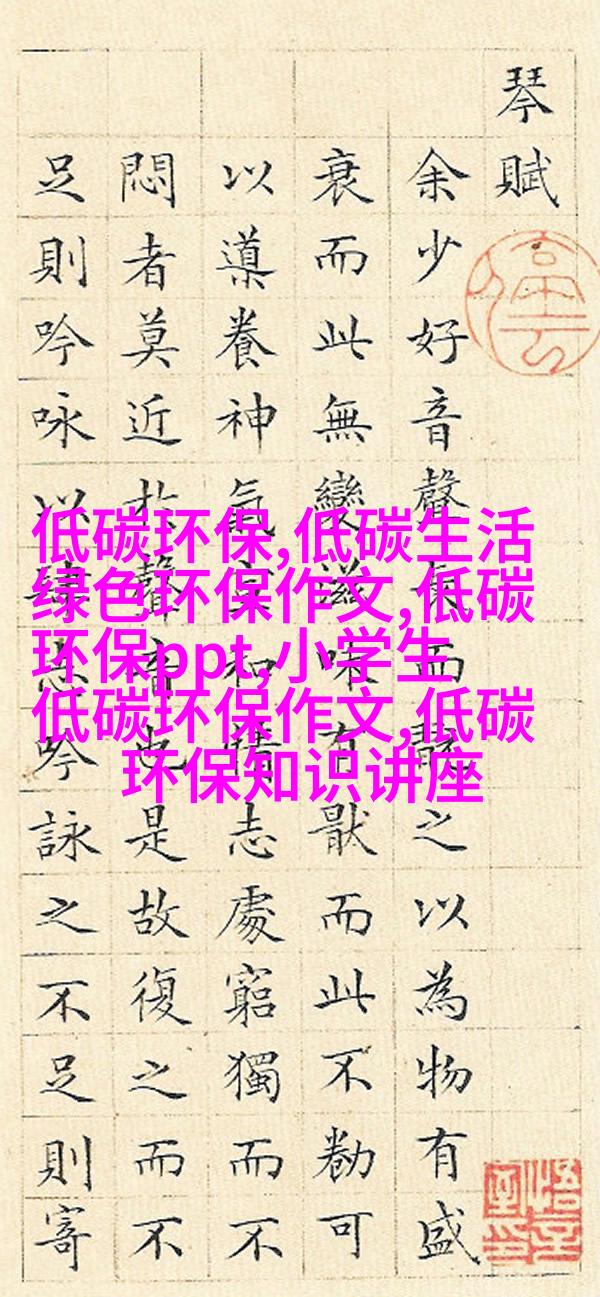 琴賦
余少好音聲長而翫之以為物有盛
衰而此無變滋味有猒而此不勌可
以導養神氣宣和情志處窮獨而不
悶者莫近於聲音也是故復之而不
足則吟咏以肆志吟詠之不足則寄
低碳环保,低碳生活
绿色环保作文,低碳
环保ppt,小学生
低碳环保作文,低碳
环保知识讲座